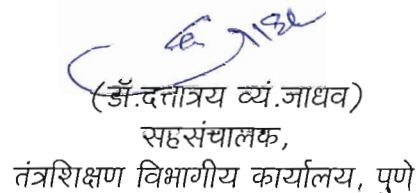 (डॉ.दत्तात्रय व्यं.जाधव)
सहसंचालक,
तंत्रशिक्षण विभागीय कार्यालय, पुणे